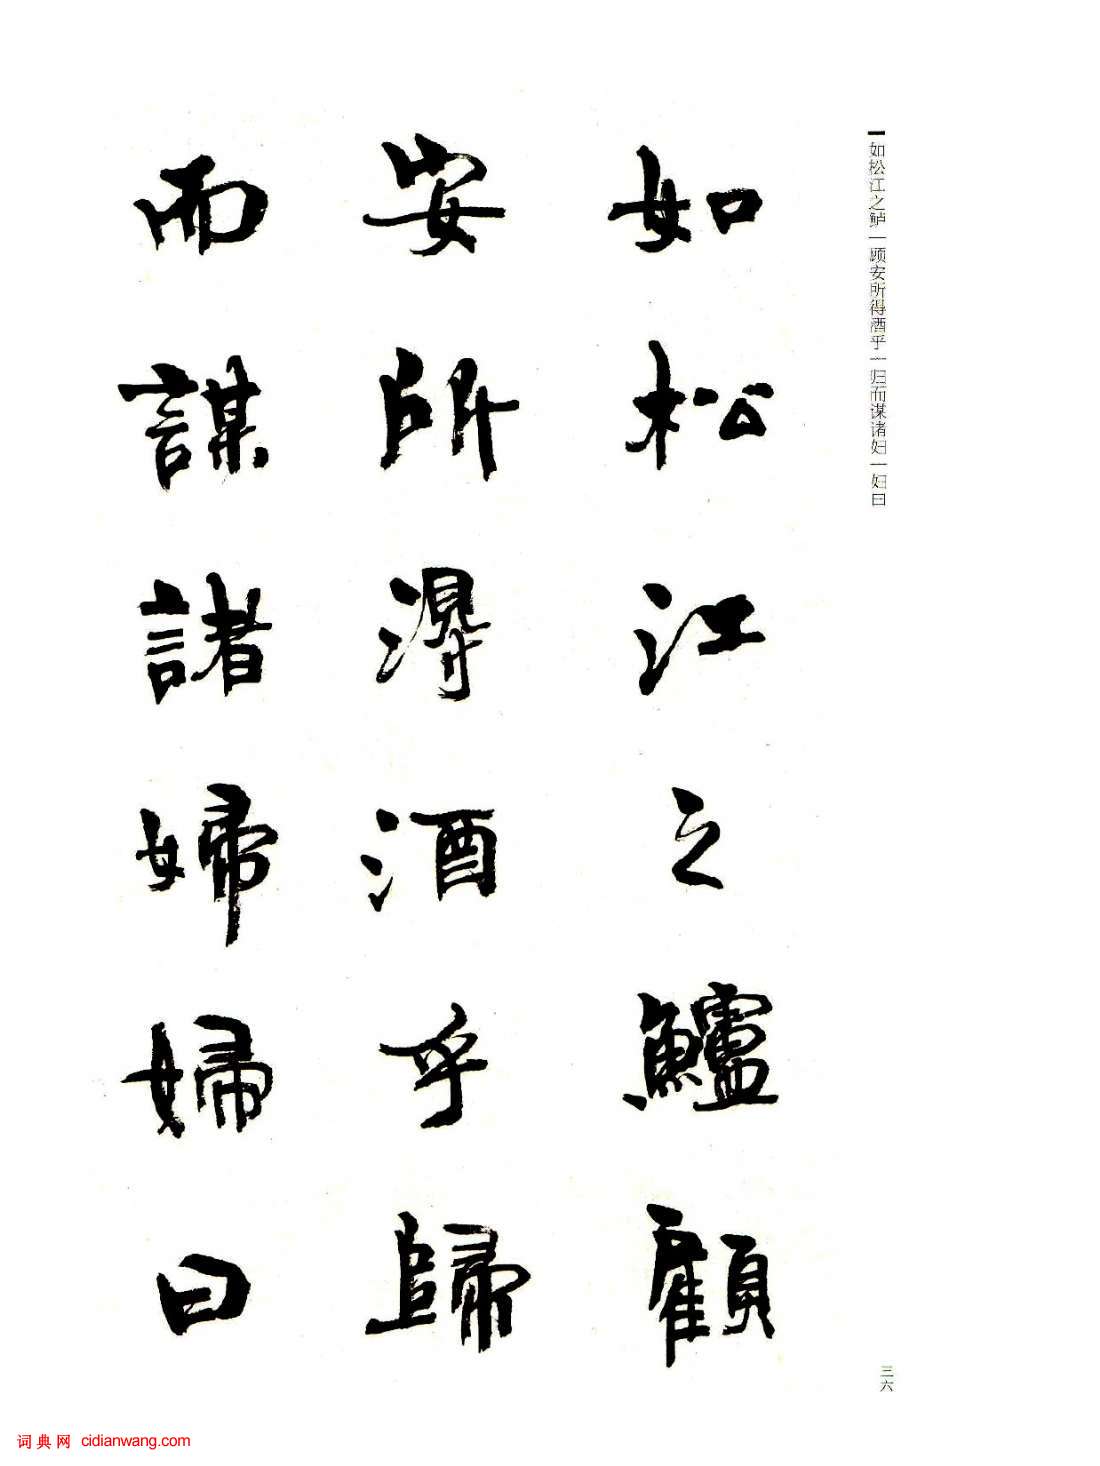 一如松江之鲈一顾安所得酒乎一归而谋诸妇一妇曰
如松江之鱸顧
安所得酒乎歸
而謀諸婦婦曰
三六
词典网 cidianwang.com